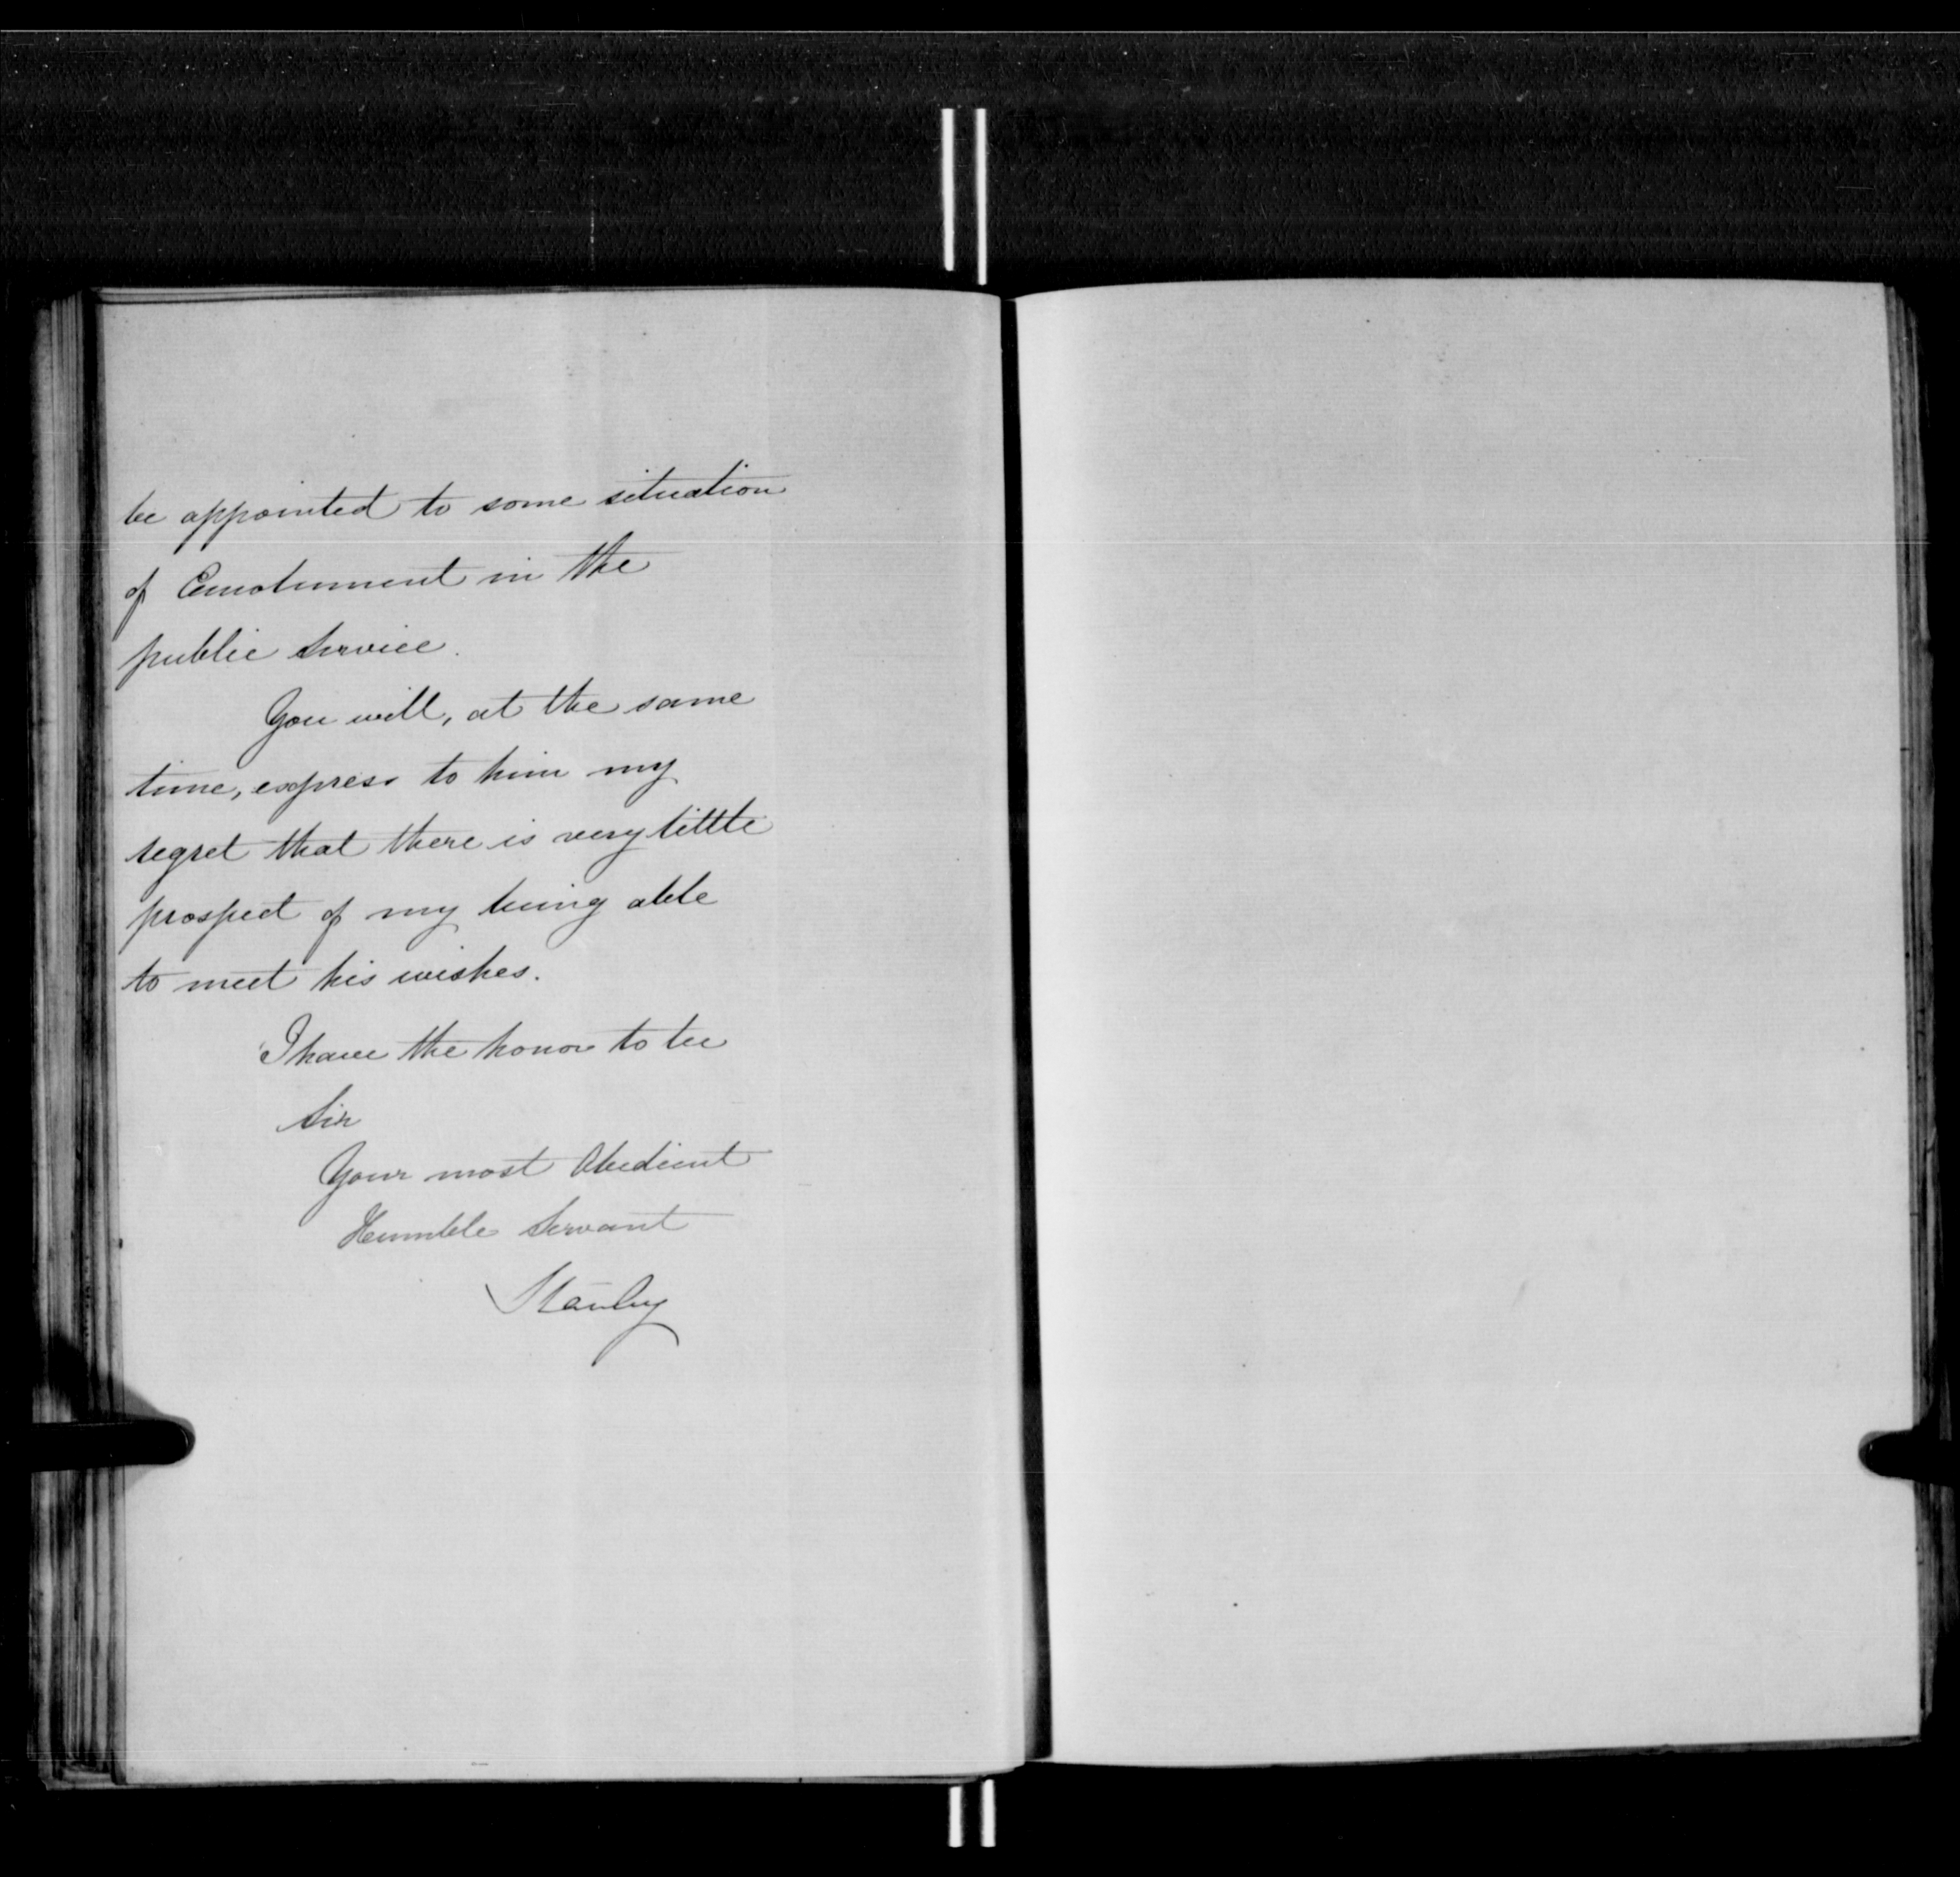 be appointed to some situation
of Emolument in the
public Service.
You will, at the same
time, express to him my
regret that there is very little
prospect of my being able
to meet his wishes.
I have the honor to be
Sir
Your most Obedient
Humble Servant
Stanley